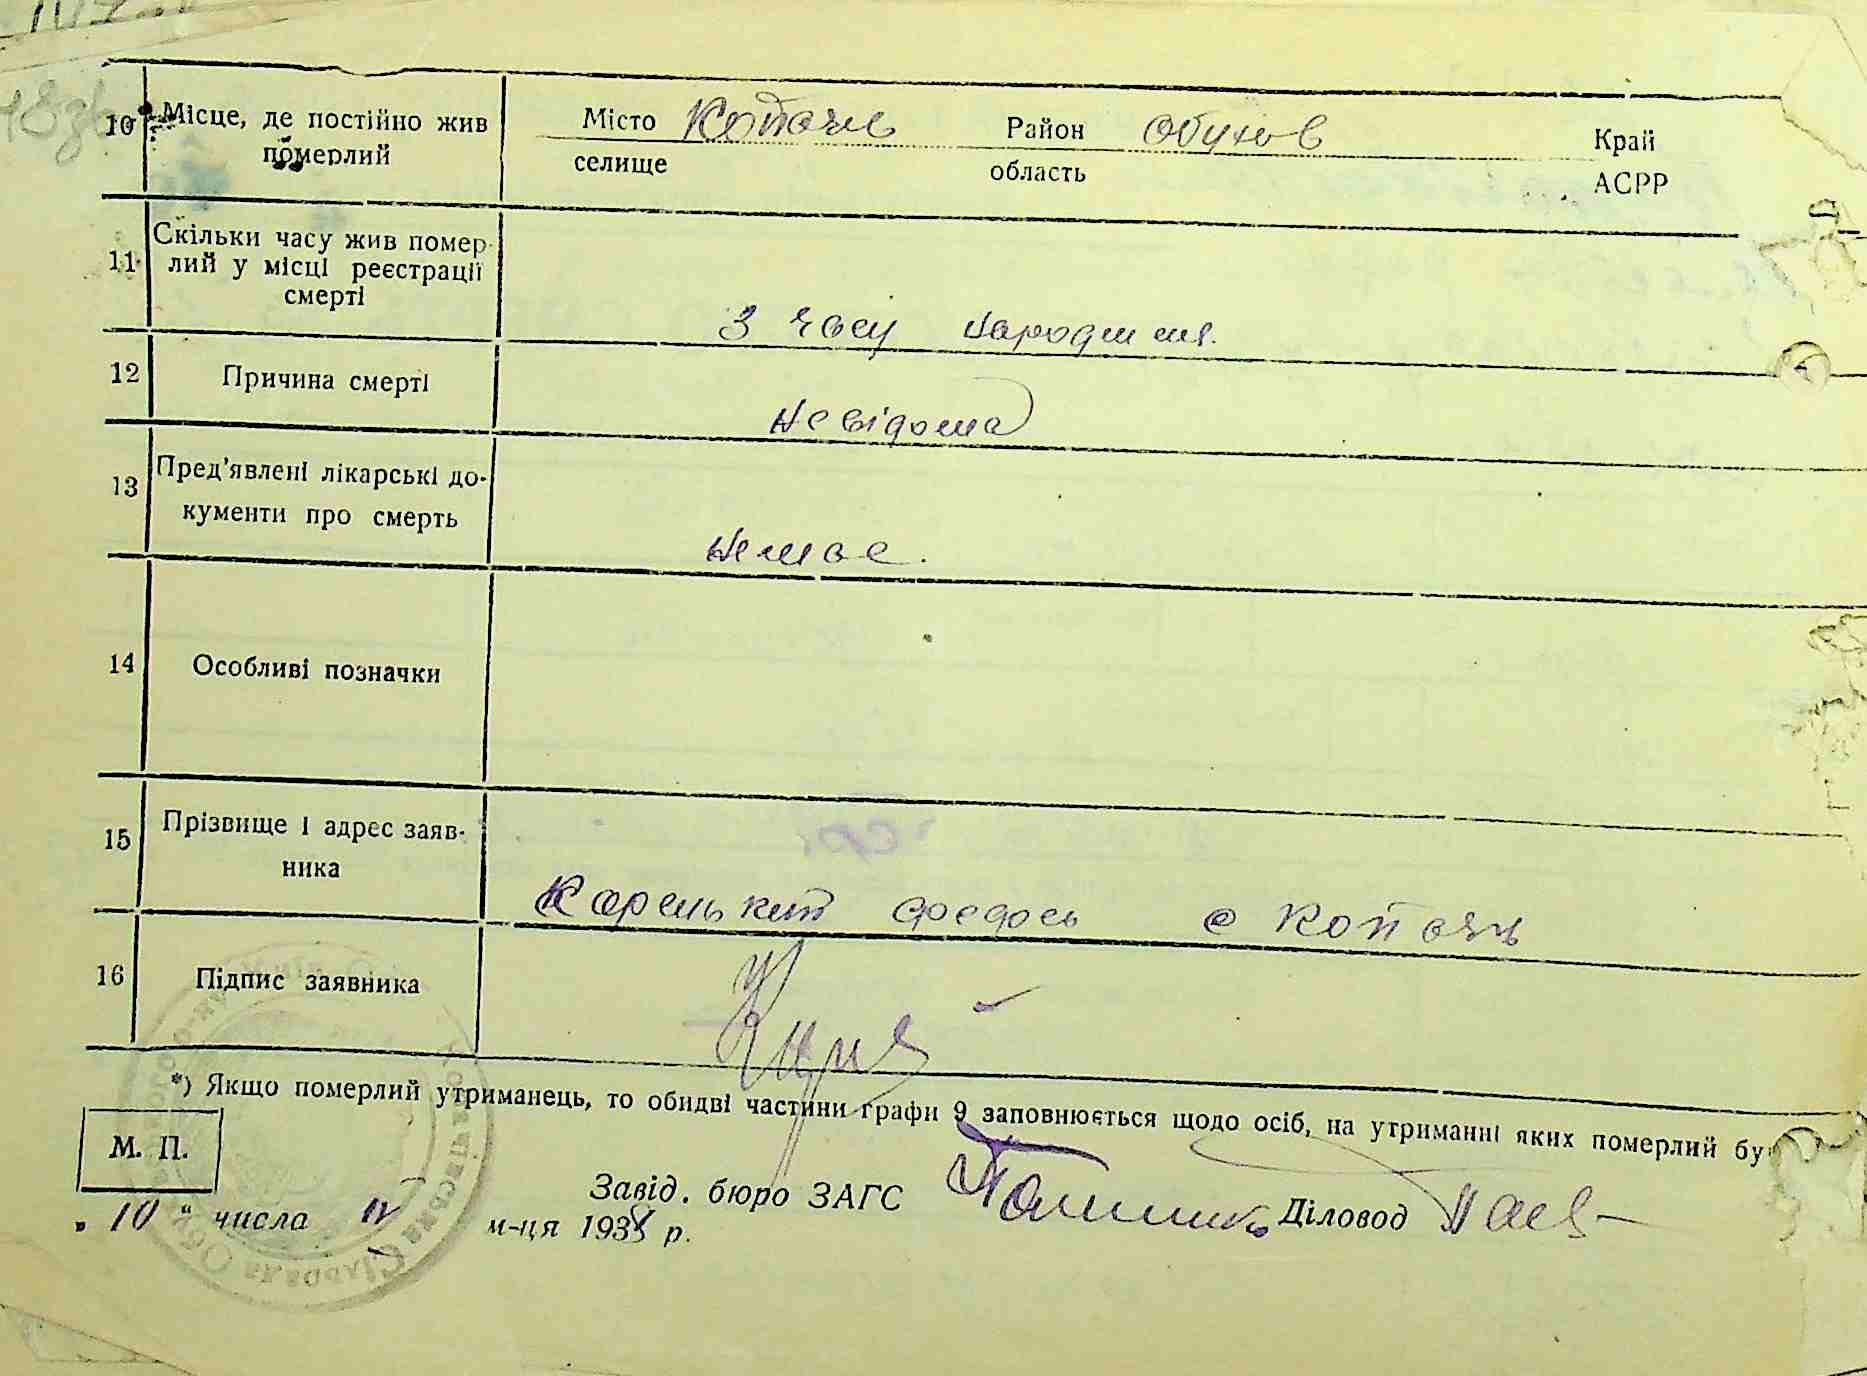 10 Місце, де постійно жив Місто Копачи Район Обухов Край
померлий селище область АСРР
11 Скільки часу жив помер-
лий у місці реєстрації
смерті
З часу народження.
12 Причина смерті
Невідома
13 Пред'явлені лікарські до-
кументи про смерть
Немає.
14 Особливі позначки
15 Прізвище і адрес заяв-
ника
Федось с Копачи
16 Підпис заявника
*) Якщо померлий утриманець, то обидві частини графи 9 заповнюється щодо осіб, на утриманні яких померлий бу
М. П.
Завід. бюро ЗАГС Діловод
„ 10 “ числа IV м-ця 193 р.